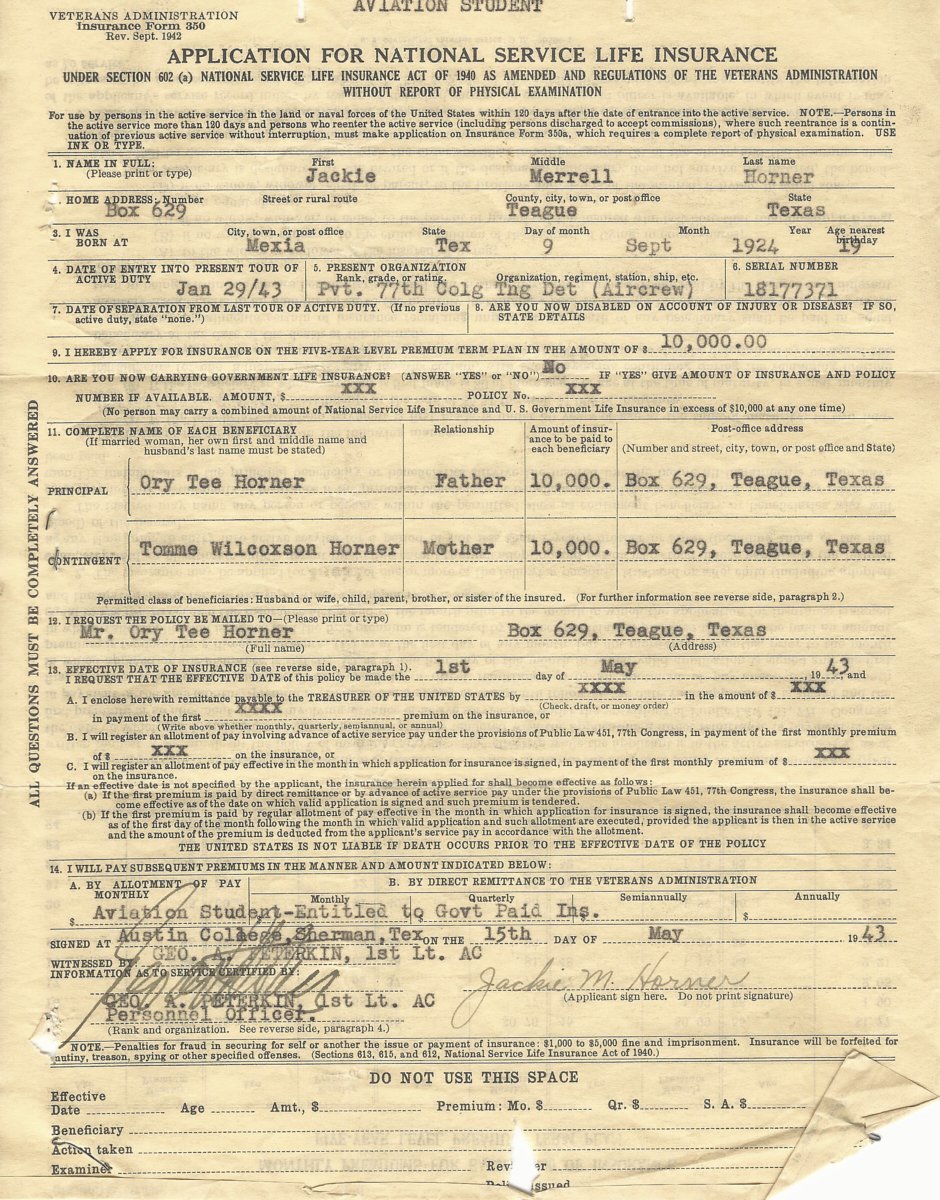 AVIATION STUDENT
VETERANS ADMINISTRATION
Insurance Form 350
Rev. Sept. 1942
APPLICATION FOR NATIONAL SERVICE LIFE INSURANCE
UNDER SECTION 602 (a) NATIONAL SERVICE LIFE INSURANCE ACT OF 1940 AS AMENDED AND REGULATIONS OF THE VETERANS ADMINISTRATION
WITHOUT REPORT OF PHYSICAL EXAMINATION
For use by persons in the active service in the land or naval forces of the United States within 120 days after the date of entrance into the active service. NOTE.—Persons in
the active service more than 120 days and persons who reenter the active service (including persons discharged to accept commissions), where such reentrance is a contin-
uation of previous active service without interruption, must make application on Insurance Form 350a, which requires a complete report of physical examination. USE
INK OR TYPE.
1. NAME IN FULL: First Middle Last name
(Please print or type) Jackie Merrell Horner
2. HOME ADDRESS: Number Street or rural route County, city, town, or post office State
Box 629 Teague Texas
3. I WAS City, town, or post office State Day of month Month Year Age nearest
BORN AT Mexia Tex 9 Sept 1924 birthday 19
4. DATE OF ENTRY INTO PRESENT TOUR OF 5. PRESENT ORGANIZATION 6. SERIAL NUMBER
ACTIVE DUTY Rank, grade, or rating. Organization, regiment, station, ship, etc.
Jan 29/43 Pvt. 77th Colg Tng Det (Aircrew) 18177371
7. DATE OF SEPARATION FROM LAST TOUR OF ACTIVE DUTY. (If no previous 8. ARE YOU NOW DISABLED ON ACCOUNT OF INJURY OR DISEASE? IF SO,
active duty, state "none.") STATE DETAILS
9. I HEREBY APPLY FOR INSURANCE ON THE FIVE-YEAR LEVEL PREMIUM TERM PLAN IN THE AMOUNT OF $ 10,000.00
10. ARE YOU NOW CARRYING GOVERNMENT LIFE INSURANCE? (ANSWER "YES" or "NO") No IF "YES" GIVE AMOUNT OF INSURANCE AND POLICY
NUMBER IF AVAILABLE. AMOUNT, $ xxx POLICY No. xxx
(No person may carry a combined amount of National Service Life Insurance and U. S. Government Life Insurance in excess of $10,000 at any one time)
11. COMPLETE NAME OF EACH BENEFICIARY Relationship Amount of insur- Post-office address
(If married woman, her own first and middle name and ance to be paid to (Number and street, city, town, or post office and State)
husband's last name must be stated) each beneficiary
PRINCIPAL Ory Tee Horner Father 10,000. Box 629, Teague, Texas
CONTINGENT Tomme Wilcoxson Horner Mother 10,000. Box 629, Teague, Texas
Permitted class of beneficiaries: Husband or wife, child, parent, brother, or sister of the insured. (For further information see reverse side, paragraph 2.)
12. I REQUEST THE POLICY BE MAILED TO—(Please print or type)
Mr. Ory Tee Horner Box 629, Teague, Texas
(Full name) (Address)
13. EFFECTIVE DATE OF INSURANCE (see reverse side, paragraph 1).
I REQUEST THAT THE EFFECTIVE DATE of this policy be made the 1st day of May, 1943 and
A. I enclose herewith remittance payable to the TREASURER OF THE UNITED STATES by xxxx in the amount of $ xxx
(Check, draft, or money order)
in payment of the first xxxx premium on the insurance, or
(Write above whether monthly, quarterly, semiannual, or annual)
B. I will register an allotment of pay involving advance of active service pay under the provisions of Public Law 451, 77th Congress, in payment of the first monthly premium
of $ xxx on the insurance, or
C. I will register an allotment of pay effective in the month in which application for insurance is signed, in payment of the first monthly premium of $ xxx
on the insurance.
If an effective date is not specified by the applicant, the insurance herein applied for shall become effective as follows:
(a) If the first premium is paid by direct remittance or by advance of active service pay under the provisions of Public Law 451, 77th Congress, the insurance shall be-
come effective as of the date on which valid application is signed and such premium is tendered.
(b) If the first premium is paid by regular allotment of pay effective in the month in which application for insurance is signed, the insurance shall become effective
as of the first day of the month following the month in which valid application and such allotment are executed, provided the applicant is then in the active service
and the amount of the premium is deducted from the applicant's service pay in accordance with the allotment.
THE UNITED STATES IS NOT LIABLE IF DEATH OCCURS PRIOR TO THE EFFECTIVE DATE OF THE POLICY
14. I WILL PAY SUBSEQUENT PREMIUMS IN THE MANNER AND AMOUNT INDICATED BELOW:
A. BY ALLOTMENT OF PAY B. BY DIRECT REMITTANCE TO THE VETERANS ADMINISTRATION
MONTHLY Monthly Quarterly Semiannually Annually
$ Aviation Student-Entitled to Govt Paid Ins. $
SIGNED AT Austin College, Sherman, Tex ON THE 15th DAY OF May 1943
WITNESSED BY: GEO. A. PETERKIN, 1st Lt. AC
INFORMATION AS TO SERVICE CERTIFIED BY:
Jackie M. Horner
GEO. A. PETERKIN, 1st Lt. AC (Applicant sign here. Do not print signature)
Personnel Officer.
(Rank and organization. See reverse side, paragraph 4.)
NOTE.—Penalties for fraud in securing for self or another the issue or payment of insurance: $1,000 to $5,000 fine and imprisonment. Insurance will be forfeited for
mutiny, treason, spying or other specified offenses. (Sections 613, 615, and 612, National Service Life Insurance Act of 1940.)
DO NOT USE THIS SPACE
Effective
Date Age Amt., $ Premium: Mo. $ Qr. $ S. A. $
Beneficiary
Action taken
Examiner
ALL QUESTIONS MUST BE COMPLETELY ANSWERED